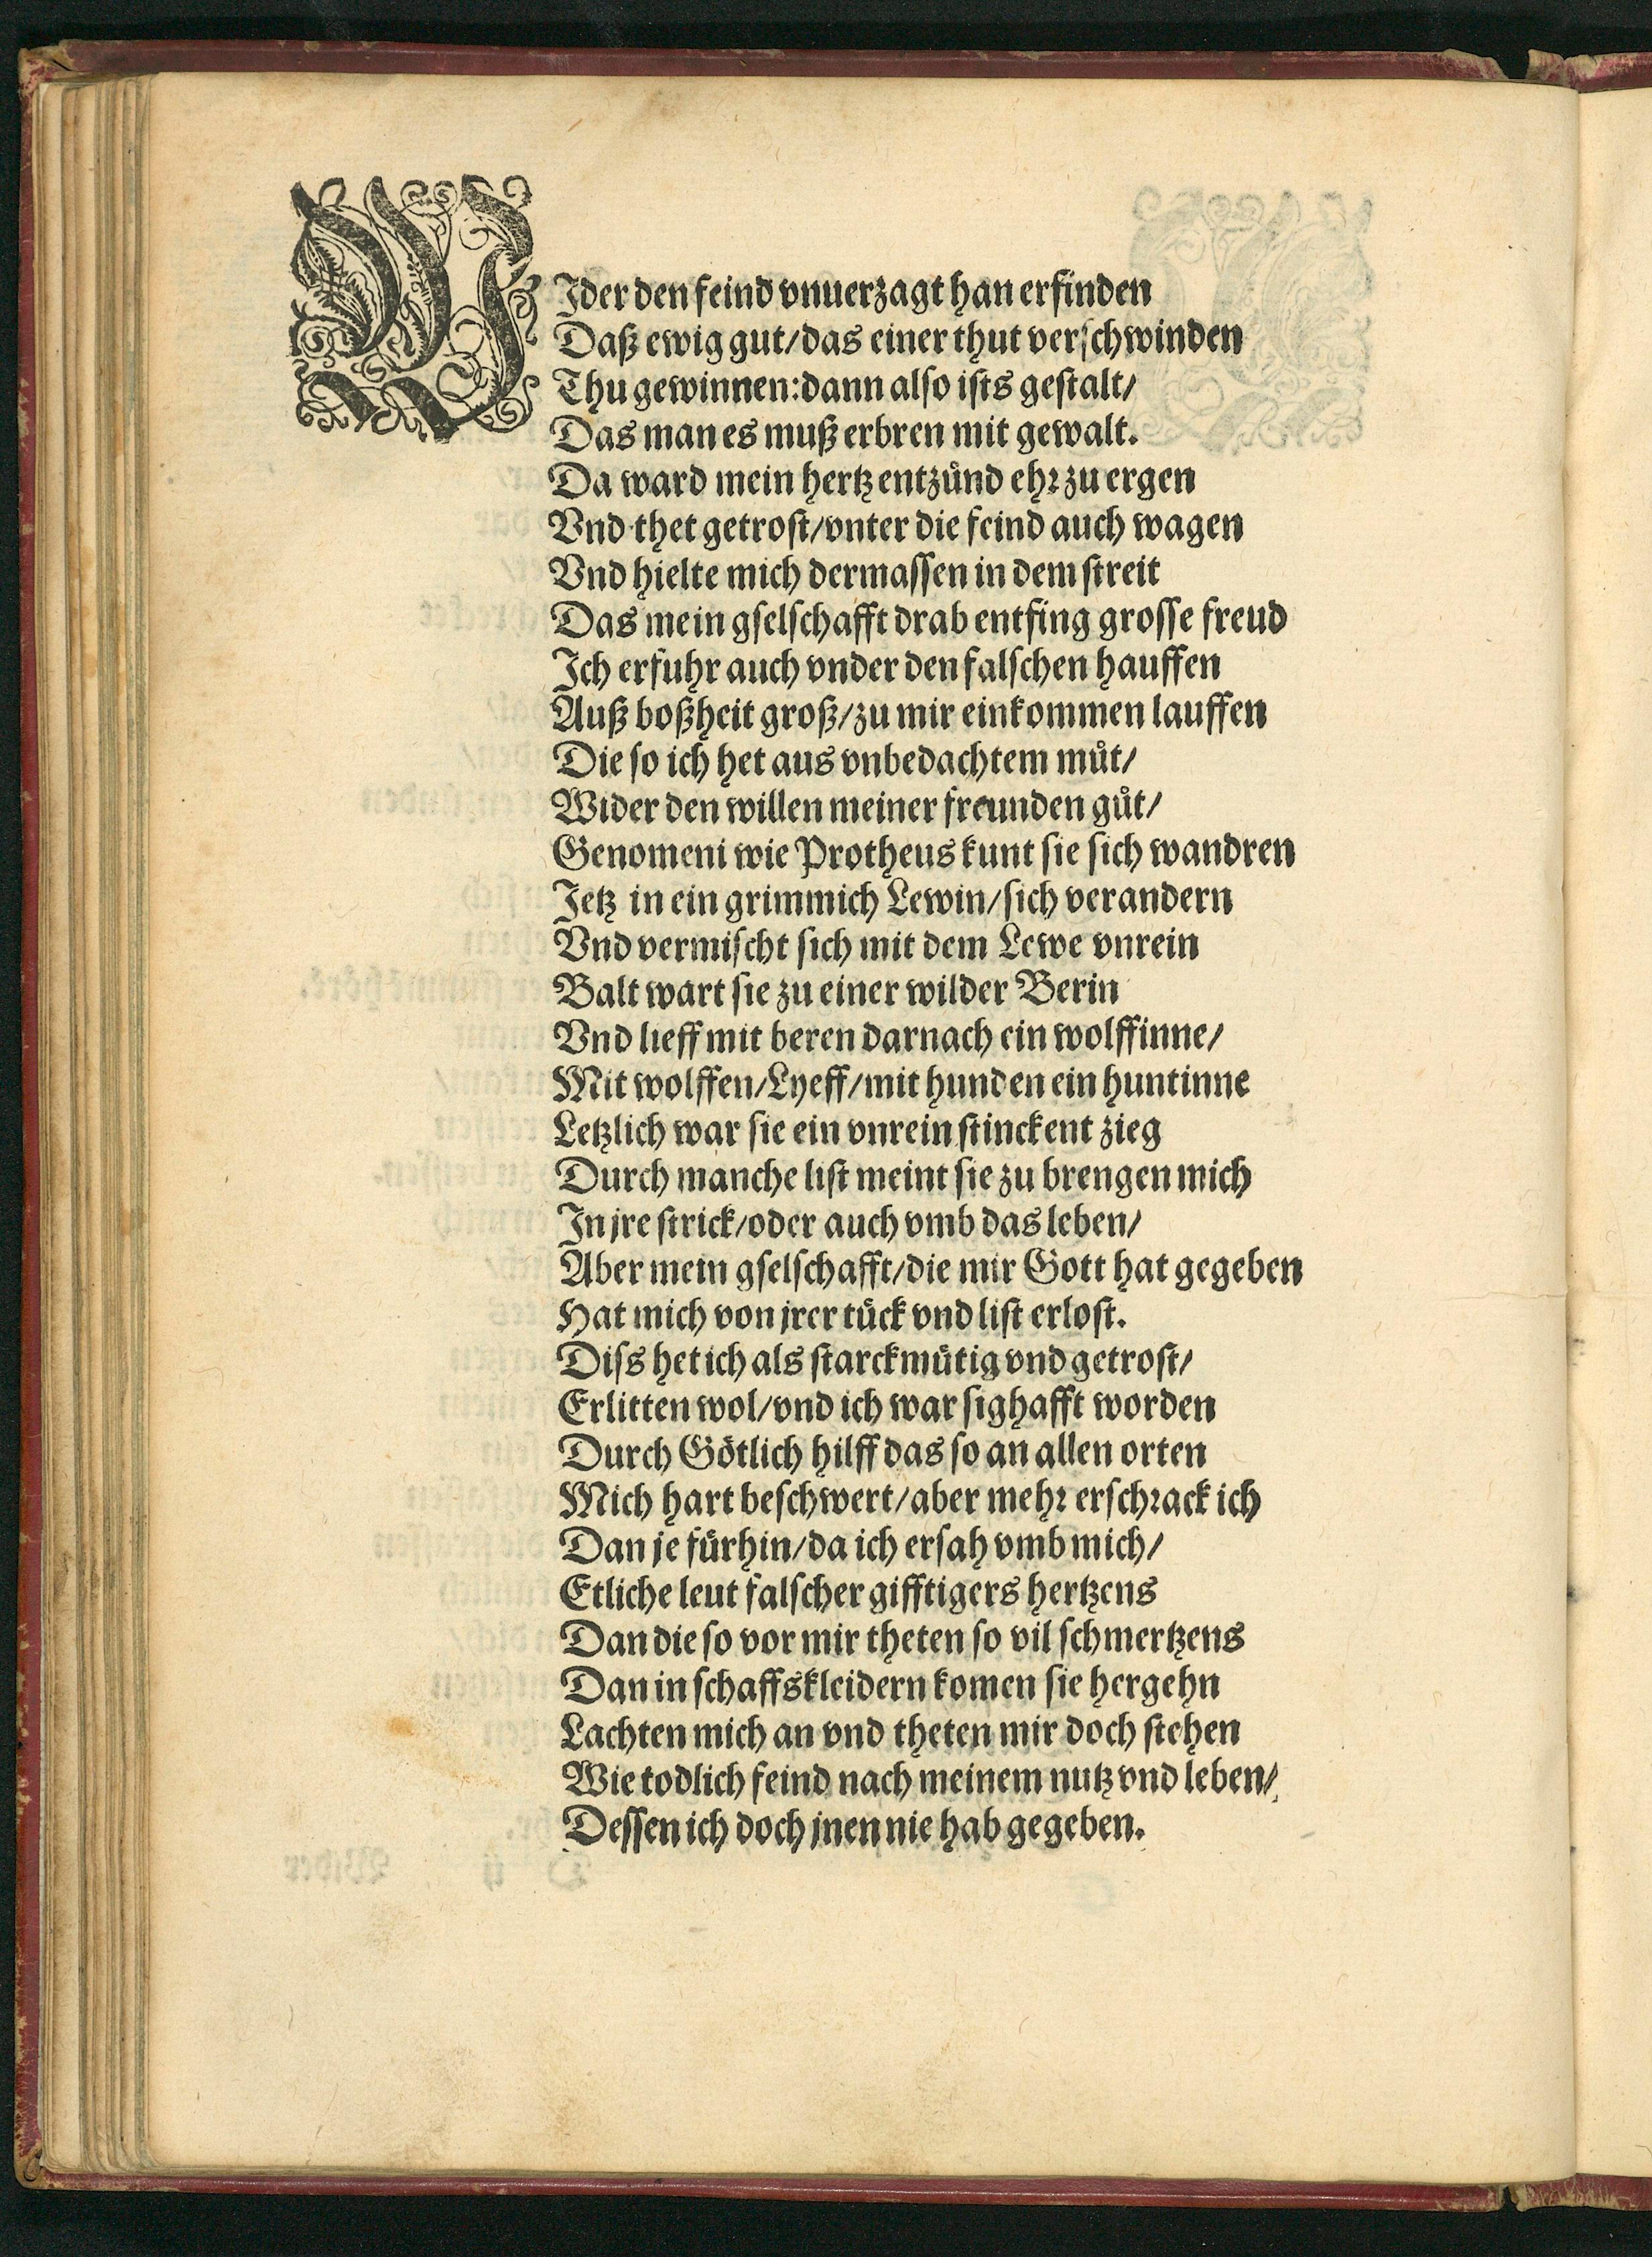 WIder den feind vnuerzagt han erfinden
Daß ewig gut/das einer thut verschwinden
Thu gewinnen:dann also ists gestalt/
Das man es muß erbren mit gewalt.
Da ward mein hertz entzůnd ehr zu ergen
Vnd thet getrost/vnter die feind auch wagen
Vnd hielte mich dermassen in dem streit
Das mein gselschafft drab entfing grosse freud
Ich erfuhr auch vnder den falschen hauffen
Auß boßheit groß/zu mir einkommen lauffen
Die so ich het aus vnbedachtem můt/
Wider den willen meiner freunden gůt/
Genomeni wie Protheus kunt sie sich wandren
Jetz in ein grimmich Lewin/sich verandern
Vnd vermischt sich mit dem Lewe vnrein
Balt wart sie zu einer wilder Berin
Vnd lieff mit beren darnach ein wolffinne/
Mit wolffen/Lyeff/mit hunden ein huntinne
Letzlich war sie ein vnrein stinckent zieg
Durch manche list meint sie zu brengen mich
In jre strick/oder auch vmb das leben/
Aber mein gselschafft/die mir Gott hat gegeben
Hat mich von jrer tůck vnd list erlost.
Diss het ich als starckmůtig vnd getrost/
Erlitten wol/vnd ich war sighafft worden
Durch Götlich hilff das so an allen orten
Mich hart beschwert/aber mehr erschrack ich
Dan je fůrhin/da ich ersah vmb mich/
Etliche leut falscher gifftigers hertzens
Dan die so vor mir theten so vil schmertzens
Dan in schaffskleidern komen sie hergehn
Lachten mich an vnd theten mir doch stehen
Wie todlich feind nach meinem nutz vnd leben/
Dessen ich doch jnen nie hab gegeben.